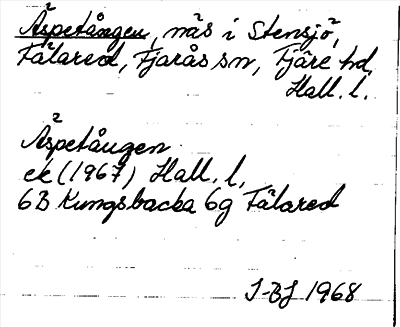 Äspetången, näs i Stensjö,
Fälared, Fjärås sn, Fjäre hd,
Hall. l.
Äspetången
ek (1967) Hall. l,
6B Kungsbacka 6g Fälared
J-BJ 1968